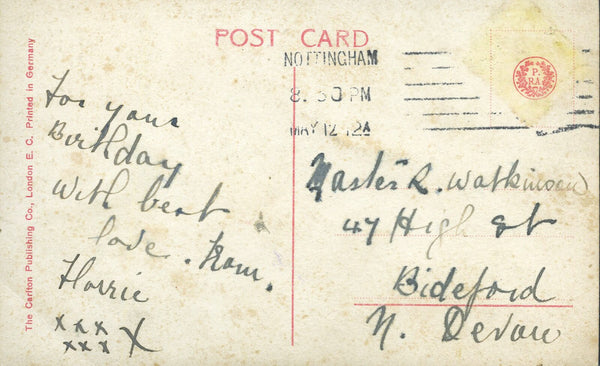 POST CARD
NOTTINGHAM
8. 30 PM
MAY 12 12
P.
RA.
The Carlton Publishing Co., London E. C. Printed in Germany
For your
Birthday
With best
love. from.
Horrie
x x x
x x x X
Master R. Watkinson
47 High St
Bideford
N. Devon